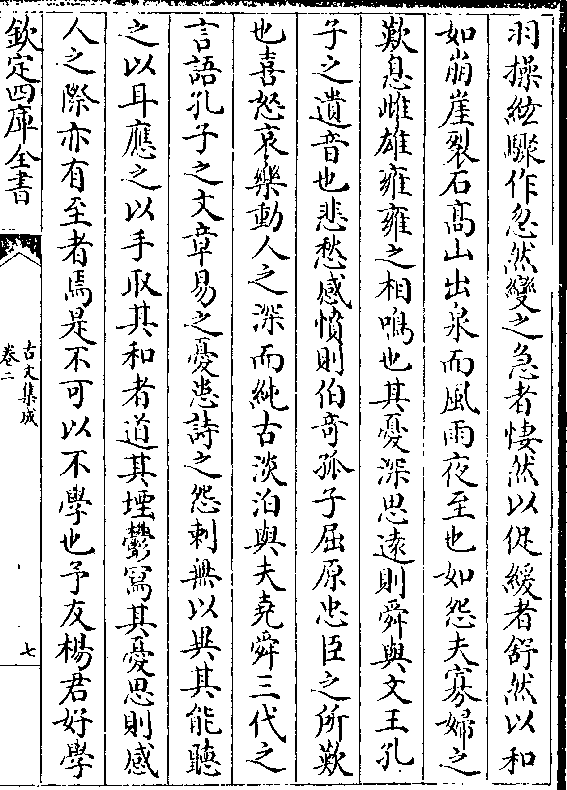 羽操絃驟作忽然變之急者悽然以促緩者舒然以和
如崩崖裂石高山出泉而風雨夜至也如怨夫寡婦之
歎息雌雄雍雍之相鳴也其憂深思遠則舜與文王孔
子之遺音也悲愁感憤則伯奇孤子屈原忠臣之所歎
也喜怒哀樂動人之深而純古淡泊與夫堯舜三代之
言語孔子之文章易之憂患詩之怨刺無以異其能聽
之以耳應之以手取其和者道其堙鬱寫其憂思則感
人之際亦有至者焉是不可以不學也予友楊君好學
欽定四庫全書
古文集成
卷二
七